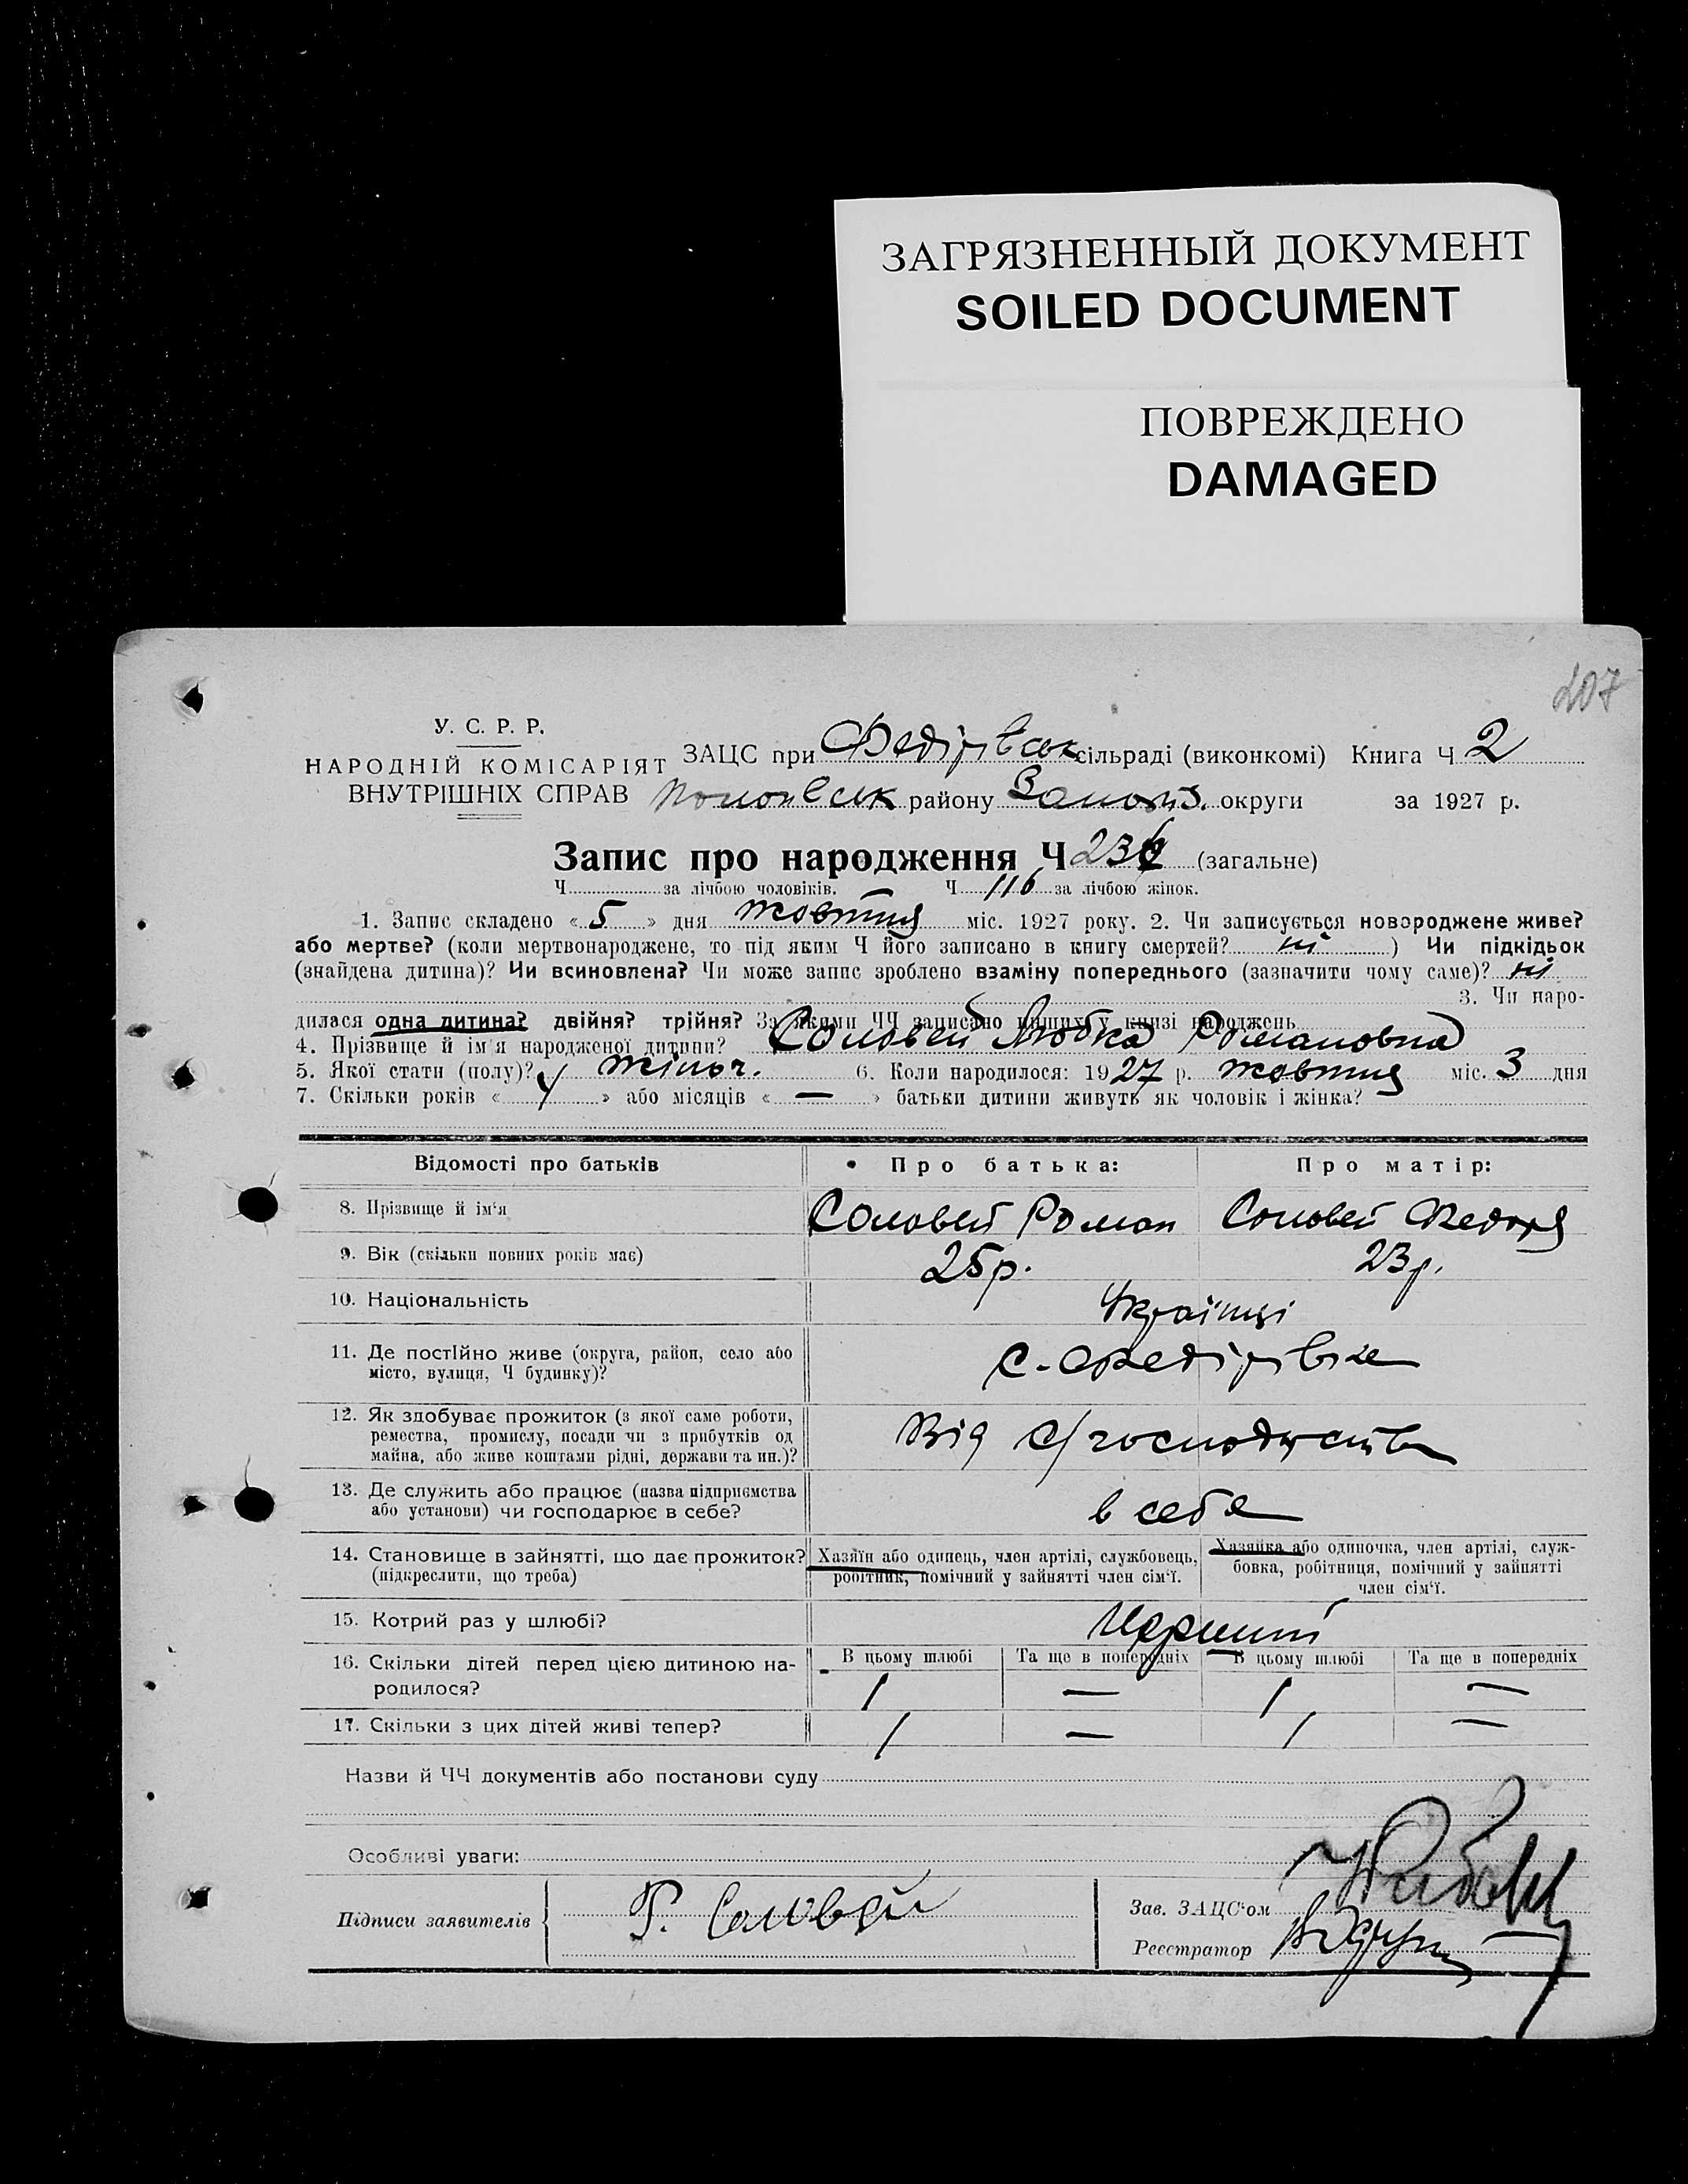 ЗАГРЯЗНЕННЫЙ ДОКУМЕНТ
SOILED DOCUMENT
ПОВРЕЖДЕНО
DAMAGED
207
У. С. Р. Р.
НАРОДНІЙ КОМІСАРІЯТ
ВНУТРІШНІХ СПРАВ
ЗАЦС при Федірівськ сільраді (виконкомі) Книга Ч 2
району Запоріз. округи за 1927 р.
Запис про народження Ч (загальне)
Ч за лічбою чоловіків. Ч 116 за лічбою жінок.
1. Запис складено « 5 » дня жовтня міс. 1927 року. 2. Чи записується новороджене живе?
або мертве? (коли мертвонароджене, то під яким Ч його записано в книгу смертей? ні ) Чи підкідьок
(знайдена дитина)? Чи всиновлена? Чи може запис зроблено взаміну попереднього (зазначити чому саме)? ні
3. Чи наро-
дилася одна дитина? двійня? трійня? За якими ЧЧ записано инших у книзі народжень
4. Прізвище й ім'я народженої дитини? Соловей Любка Романовна
5. Якої стати (полу)? жіноч. 6. Коли народилося: 1927 р. жовтня міс. 3 дня
7. Скільки років « » або місяців « — » батьки дитини живуть як чоловік і жінка?
Відомості про батьків Про батька: Про матір:
8. Прізвище й ім'я Соловей Роман Соловей Федора
9. Вік (скільки повних років має) 25 р. 23 р.
10. Національність Українці
11. Де постійно живе (округа, район, село або
місто, вулиця, Ч будинку)? с. Федірівка
12. Як здобуває прожиток (з якої саме роботи,
ремества, промислу, посади чи з прибутків од
майна, або живе коштами рідні, держави та ин.)? Від с/господарства
13. Де служить або працює (назва підприємства
або установи) чи господарює в себе? в себе
14. Становище в зайнятті, що дає прожиток?
(підкреслити, що треба)
Хазяїн або одинець, член артілі, службовець,
робітник, помічний у зайнятті член сім'ї.
Хазяйка або одиночка, член артілі, служ-
бовка, робітниця, помічний у зайнятті
член сім'ї.
15. Котрий раз у шлюбі? Перший
16. Скільки дітей перед цією дитиною на-
родилося?
В цьому шлюбі Та ще в попередніх В цьому шлюбі Та ще в попередніх
1 — 1 —
17. Скільки з цих дітей живі тепер? 1 — 1 —
Назви й ЧЧ документів або постанови суду
Особливі уваги:
Підписи заявителів Р. Соловей
Зав. ЗАЦС'ом
Реєстратор